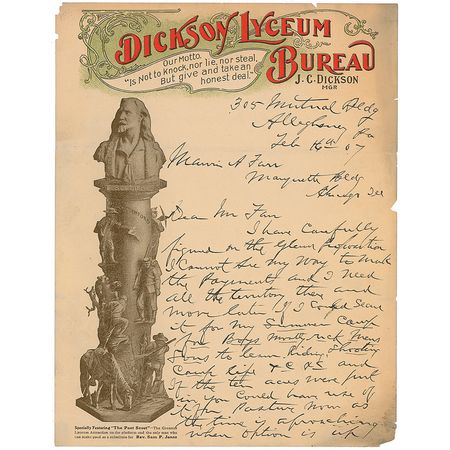 DICKSON LYCEUM
BUREAU
Our Motto.
"Is Not to Knock, nor lie, nor steal,
But give and take an
honest deal."
J. C. DICKSON
MGR
305 Mutual Bldg
Allegheney Pa
Feb 16th 07
A Farr
Marquette Bldg
Chicago Ill
Dear Mr Farr
I have Carefully
figured on the Glenn Proposition
I Cannot See my Way to Make
the Payments and I Need
all the territory there and
more later If I Could Secure
it for my Summer Camp
for Boys mostly rich Mens
Sons to learn Riding Shooting
Camp life + C + C and
if the ten acres were put
in you Could have use of
it for Pasture Now as
the time is approaching
when option is up
Specially Featuring "The Poet Scout"—The Greatest
Lyceum Attraction on the platform and the only man who
can make good as a substitute for Rev. Sam P. Jones